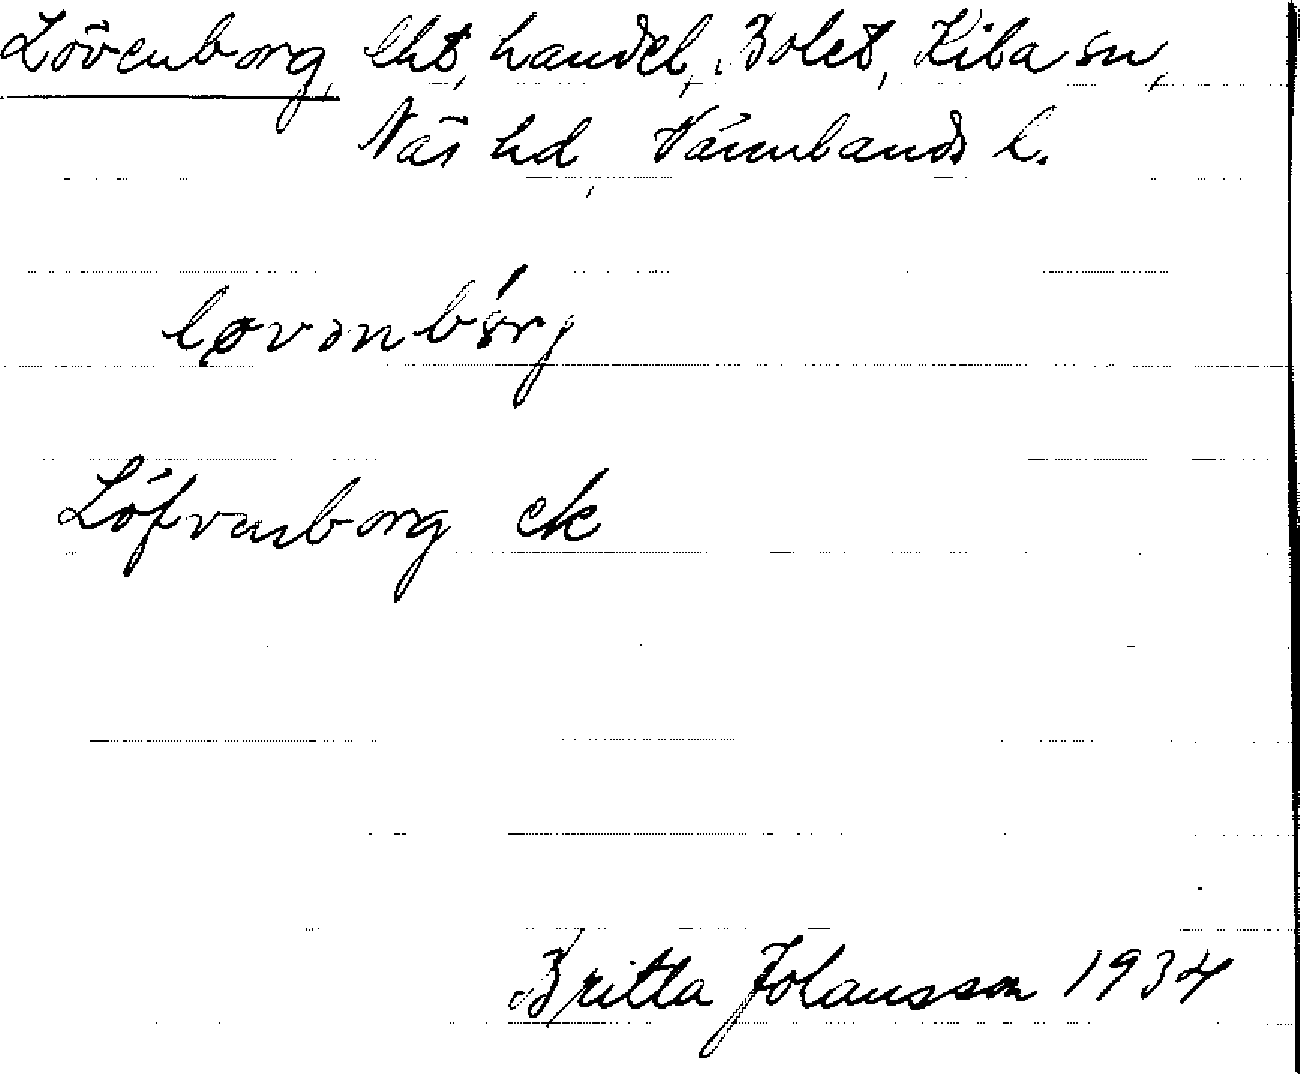 Lövenborg, lht, handel, Bolet, Kila sn,
Näs hd, Värmlands l.
Löfvenborg ek
Britta Johansson 1934